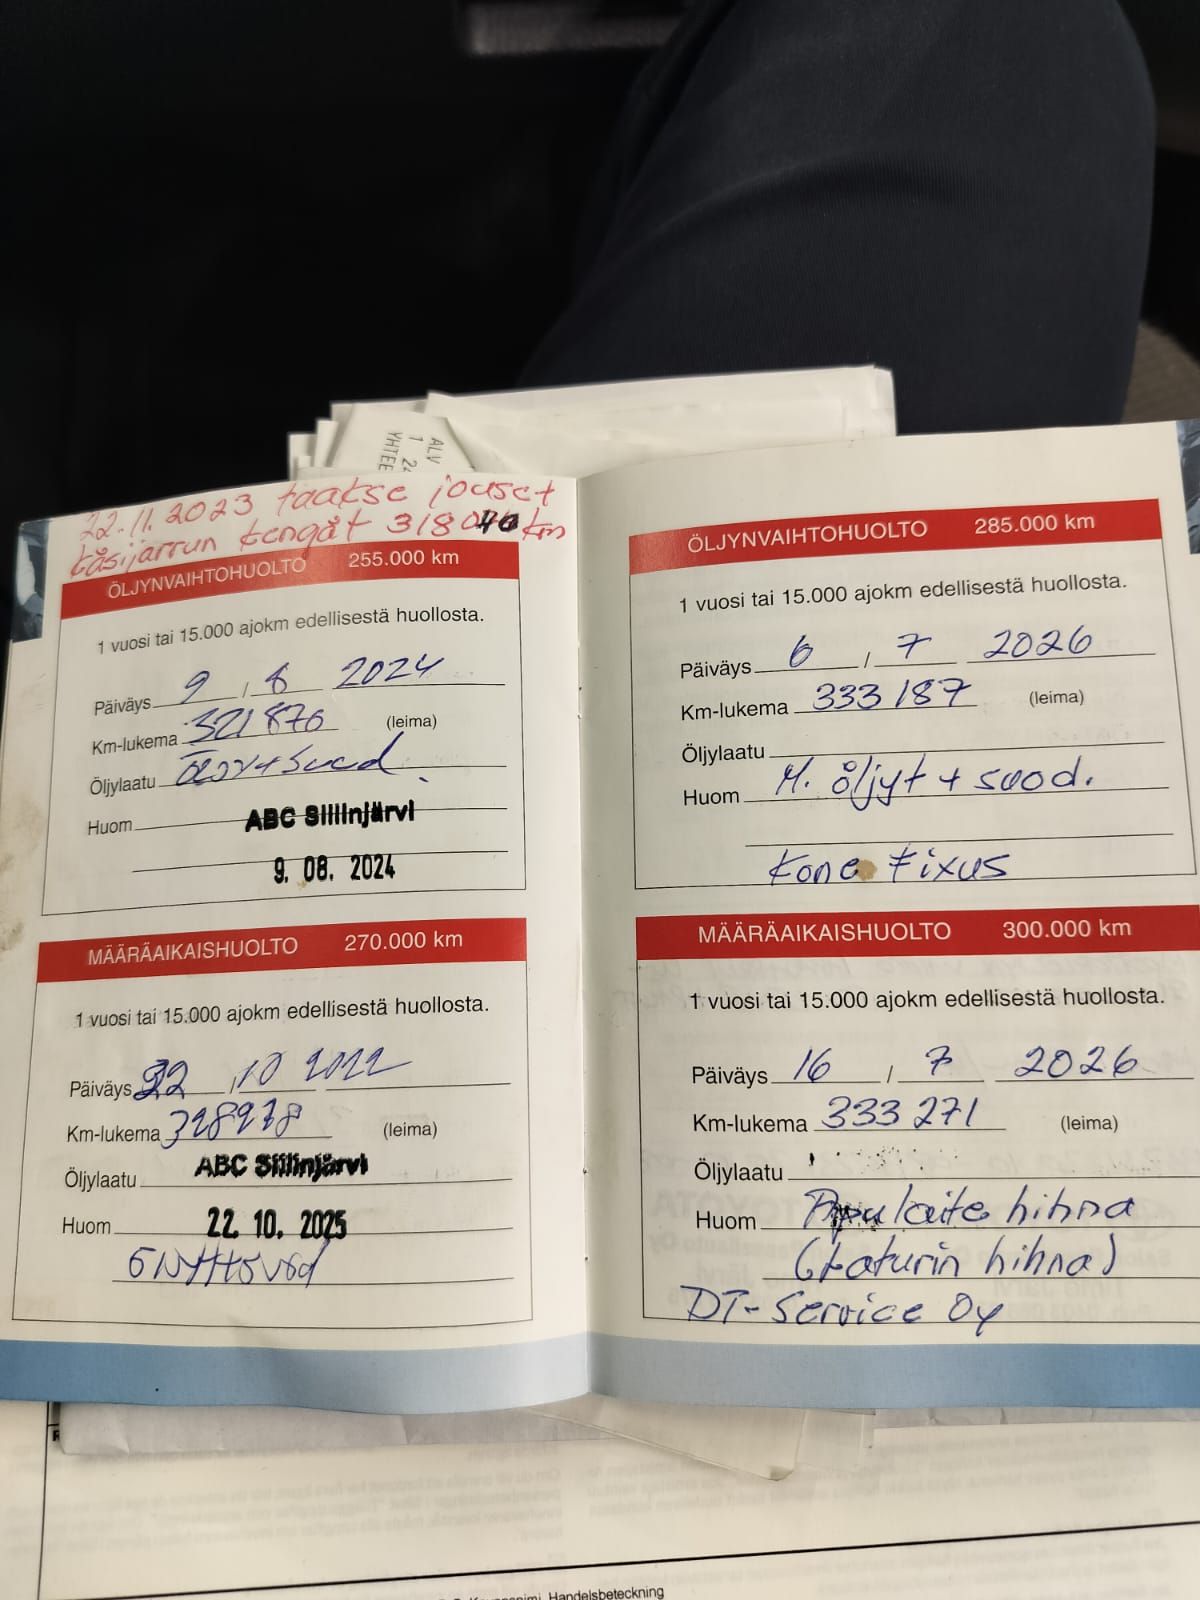 ALV
1 24
YHTEE
22.11.2023 taakse jouset
käsijarrun kengät 318040 km
ÖLJYNVAIHTOHUOLTO 255.000 km
1 vuosi tai 15.000 ajokm edellisestä huollosta.
Päiväys 9 / 8 2024
Km-lukema 321876 (leima)
Öljylaatu Öljy+suod.
Huom ABC Siilinjärvi
9. 08. 2024
MÄÄRÄAIKAISHUOLTO 270.000 km
1 vuosi tai 15.000 ajokm edellisestä huollosta.
Päiväys 22 / 10
Km-lukema 328978 (leima)
Öljylaatu ABC Siilinjärvi
Huom 22. 10. 2025
ÖLJYNVAIHTOHUOLTO 285.000 km
1 vuosi tai 15.000 ajokm edellisestä huollosta.
Päiväys 6 / 7 2026
Km-lukema 333187 (leima)
Öljylaatu
Huom M. öljyt + suod.
Kone Fixus
MÄÄRÄAIKAISHUOLTO 300.000 km
1 vuosi tai 15.000 ajokm edellisestä huollosta.
Päiväys 16 / 7 2026
Km-lukema 333271 (leima)
Öljylaatu
Huom Apulaite hihna
(Laturin hihna)
DT-Service Oy
Handelsbeteckning